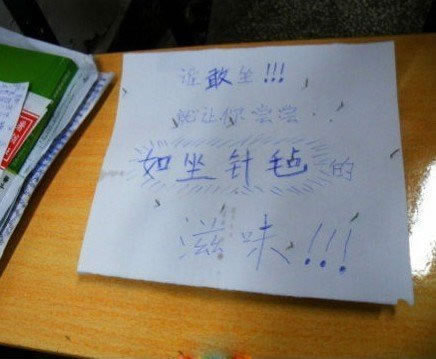 谁敢坐!!!
就让你尝尝...
如坐针毡的
滋味!!!